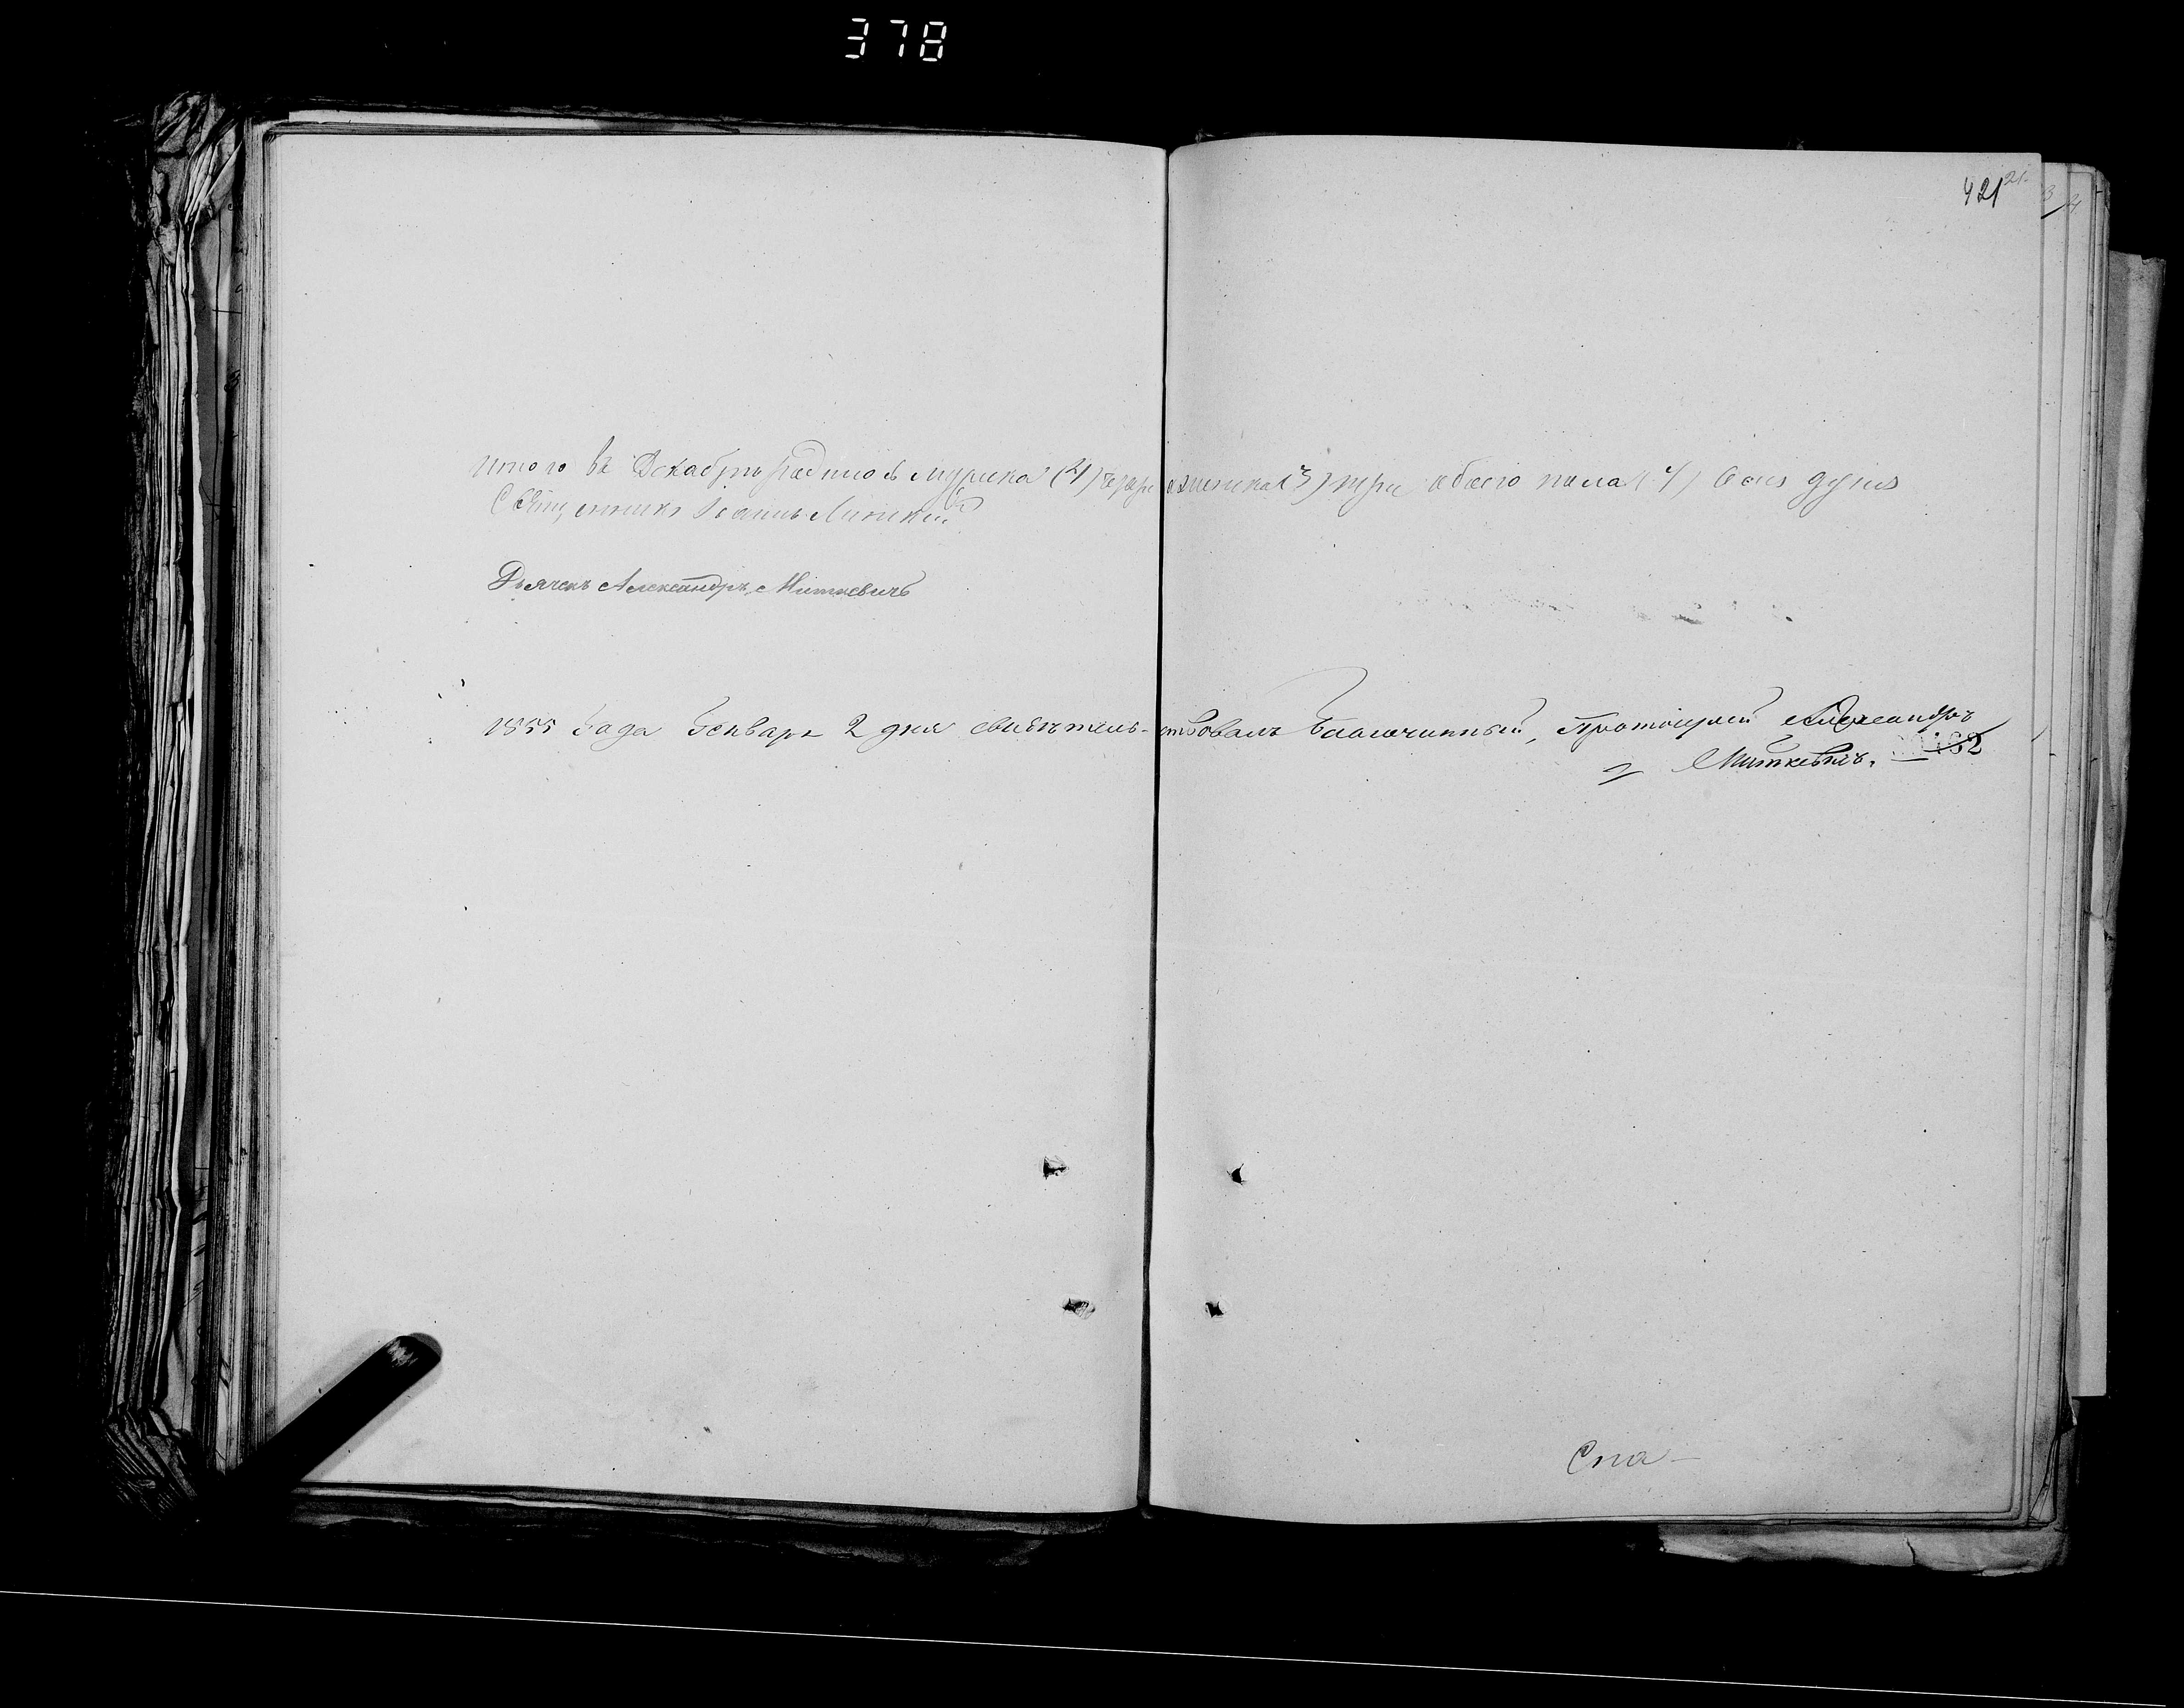 378
421 21
Итого въ Декабрѣ родилось мужска (4) четыре женска (3) три обоего пола (7) семь душъ
Священникъ Іоаннъ
Дьячекъ Александръ Миткевичъ
1855 Года Генваря 2 дня свидѣтельствовалъ Благочинный, Протоіерей Александръ
Миткевичъ. 182
Спа-